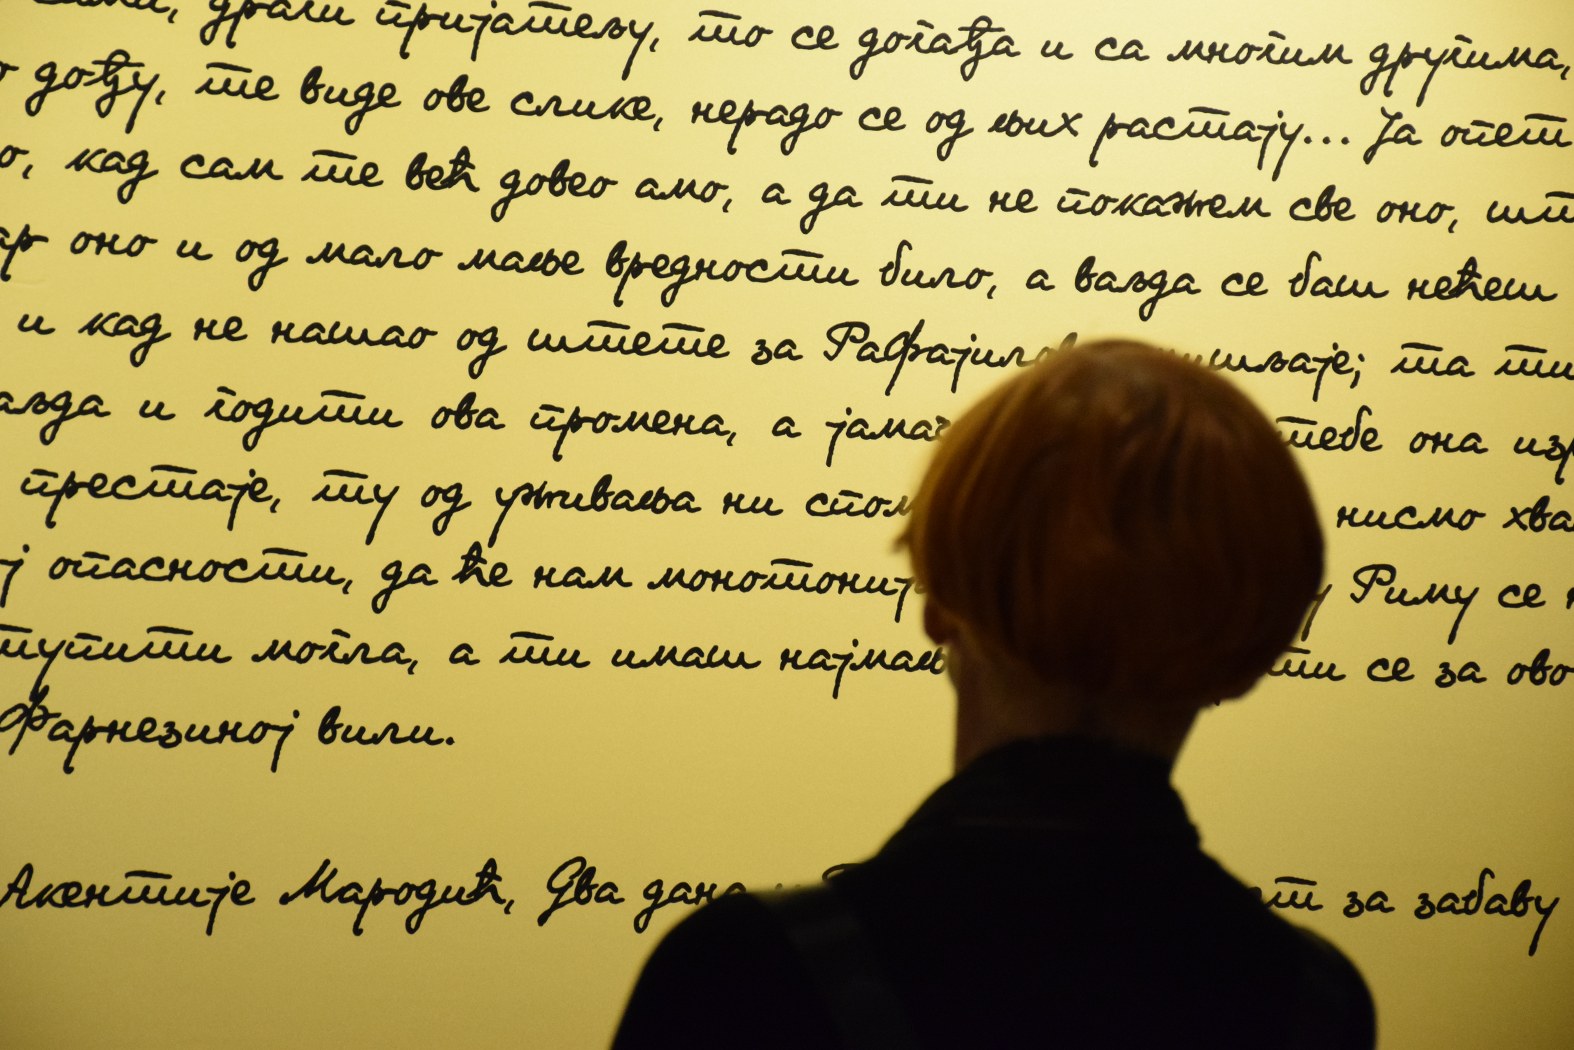 драги пријатељу, то се догађа и са многим другима,
дођу, те виде ове слике, нерадо се од њих растају... Ја опет
кад сам те већ довео амо, а да ти не покажем све оно,
оно и од мало мање вредности било, а ваљда се баш нећеш
и кад не нашао од штете за та
и годити ова промена, а тебе она
престаје, ту од уживања ни нисмо
опасности, да ће нам у Риму се
могла, а ти имаш се за ово
Фарнезиној вили.
Акентије Мародић, Два дана за забаву